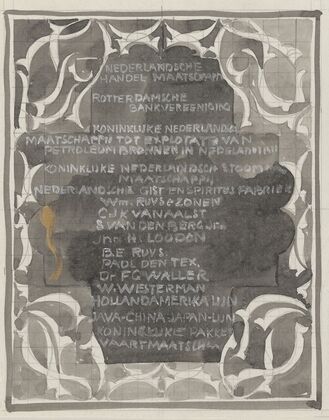 NEDERLANDSCHE
HANDEL MAATSCHAPPI
ROTTERDAMSCHE
BANKVEREENIGING
KONINKLIJKE NEDERLANDSCH
MAATSCHAPPIJ TOT EXPLOITATIE VAN
PETROLEUM BRONNEN IN NEDERL INDIE
KONINKLIJKE NEDERLANDSCHE STOOM
MAATSCHAPPIJ
NEDERLANDSCHE GIST EN SPIRITUS FABRIEK
Wm. RUYS & ZONEN
C.J.K VAN AALST
S VAN DEN BERG Jr.
Jhr H. LOUDON
B.E RUYS.
PAUL DEN TEX.
Dr F.G WALLER
W. WESTERMAN
HOLLAND AMERIKA LIJN
JAVA-CHINA-JAPAN-LIJN
KONINKLIJKE PAKKET
VAART MAATSCHA